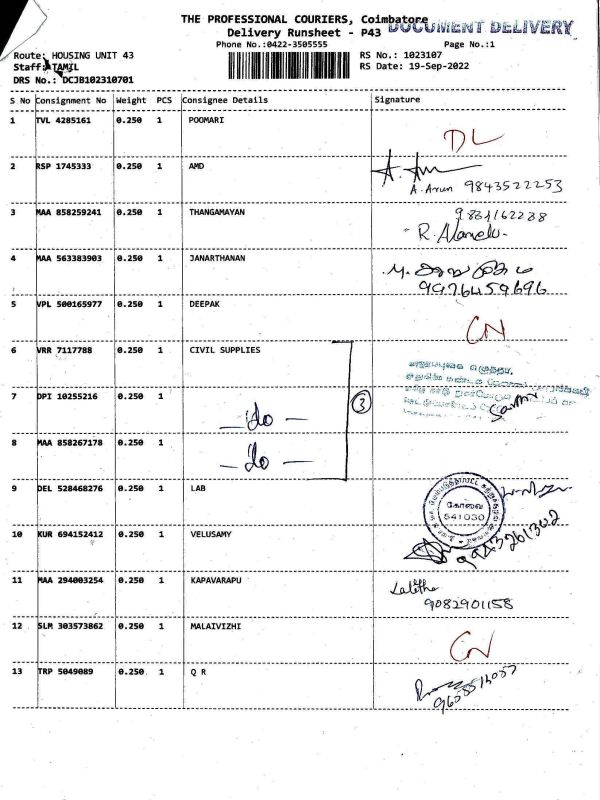 THE PROFESSIONAL COURIERS, Coimbatore
DOCUMENT DELIVERY
Delivery Runsheet - P43
Phone No.:0422-3505555
Page No.:1
Route: HOUSING UNIT 43
RS No.: 1023107
Staff: TAMIL
RS Date: 19-Sep-2022
DRS No.: DCJB102310701
S No Consignment No Weight PCS Consignee Details Signature
1 TVL 4285161 0.250 1 POOMARI DL
2 RSP 1745333 0.250 1 AMD
A. Arun 9843522253
3 MAA 858259241 0.250 1 THANGAMAYAN
R.
4 MAA 563383903 0.250 1 JANARTHANAN
9976459696
5 VPL 500165977 0.250 1 DEEPAK CN
6 VRR 7117788 0.250 1 CIVIL SUPPLIES
7 DPI 10255216 0.250 1
- do - 3
8 MAA 858267178 0.250 1
- do -
9 DEL 528468276 0.250 1 LAB
கோவை
641030
10 KUR 694152412 0.250 1 VELUSAMY
11 MAA 294003254 0.250 1 KAPAVARAPU
Lalitha
9082901158
12 SLM 303573862 0.250 1 MALAIVIZHI CN
13 TRP 5049089 0.250 1 Q R